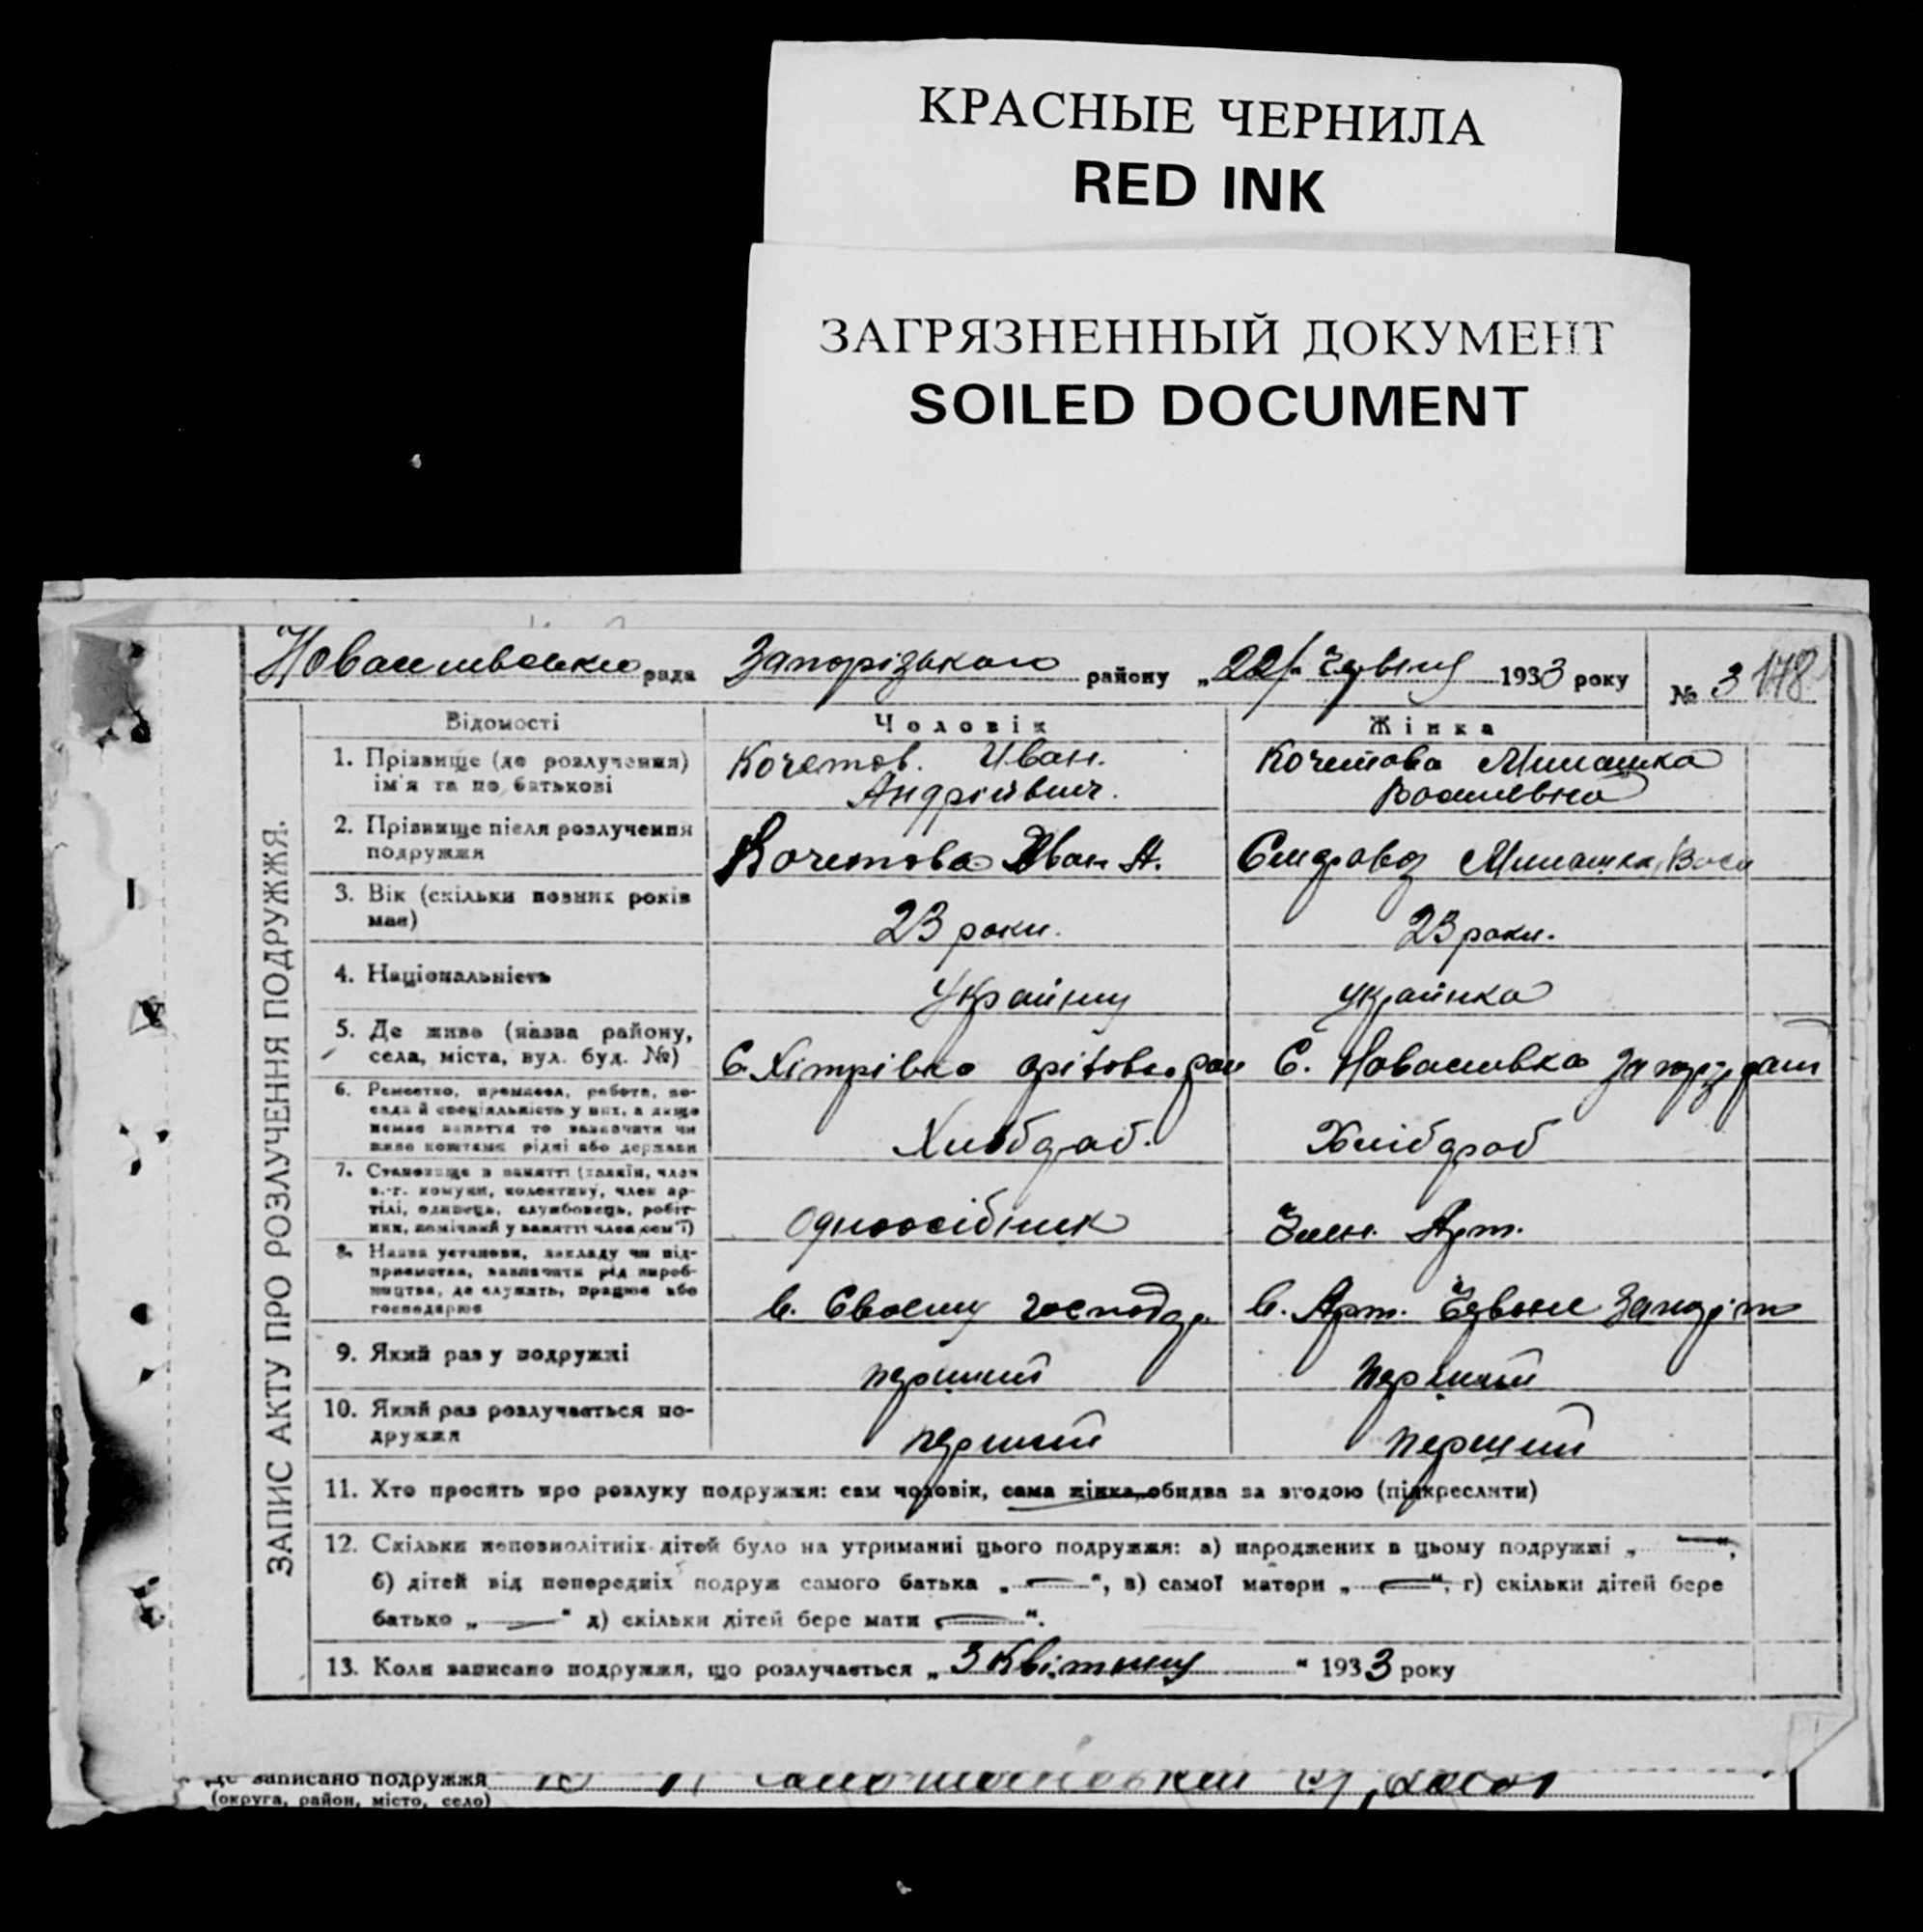 КРАСНЫЕ ЧЕРНИЛА
RED INK
ЗАГРЯЗНЕННЫЙ ДОКУМЕНТ
SOILED DOCUMENT
рада Запорізького району „22/ Червня 1933 року № 3 178
ЗАПИС АКТУ ПРО РОЗЛУЧЕННЯ ПОДРУЖЖЯ.
Відомості Чоловік Жінка
1. Прізвище (до розлучення) Кочетов. Иван. Кочетова Милашка
ім'я та по батькові Андрійвич. Василевна
2. Прізвище після розлучення
подружжя Кочетова Иван А. Милашка Васи
3. Вік (скільки повних років
має) 23 роки. 23 роки.
4. Національність Україну українка
5. Де живе (назва району,
села, міста, вул. буд. №) С. Хітрівка С. Новаливка
6. Ремество, промисел, робота, по-
сада й спеціальність у них, а якщо
немає заняття то зазначити чи
живе коштами рідні або держави Хлібдроб
7. Становище в занятті (хазяїн, член
с.-г. комуни, колективу, член ар-
тілі, одинець, службовець, робіт-
ник, помічний у занятті член сем'ї) Одноосібник Член. Арт.
8. Назва установи, закладу чи під-
приємства, зазначити рід вироб-
ництва, де служить, працює або
господарює в. Своєму господар. в. Арт.
9. Який раз у подружжі перший перший
10. Який раз розлучається по-
дружжя перший перший
11. Хто просить про розлуку подружжя: сам чоловік, сама жінка, обидва за згодою (підкреслити)
12. Скільки неповнолітніх дітей було на утриманні цього подружжя: а) народжених в цьому подружжі „ — “,
б) дітей від попередніх подруж самого батька „ — “, в) самої матери „ — “, г) скільки дітей бере
батько „ — “ д) скільки дітей бере мати „ — “.
13. Коли записано подружжя, що розлучається „ 3 Квітня “ 1933 року
Де записано подружжя
(округа, район, місто, село)